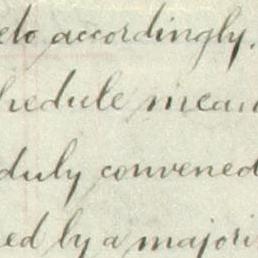 eto accordingly.
hedule mean
duly convened
ed by a majori